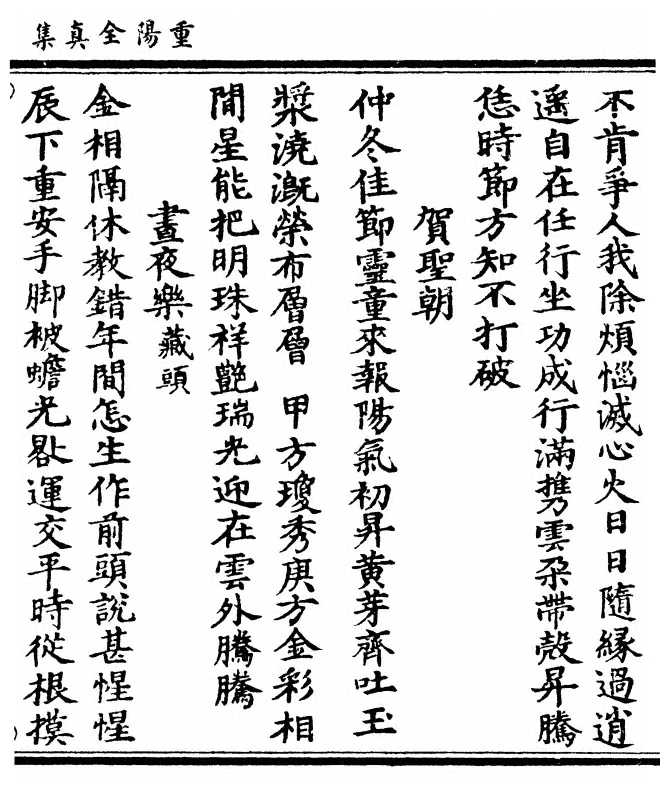 重陽全真集
不肯爭人我除煩惱滅心火日日隨緣過逍
遥自在任行坐功成行滿携雲朶帶殼昇騰
恁時節方知不打破
賀聖朝
仲冬佳節靈童來報陽氣初昇黄芽齊吐玉
漿澆溉榮布層層 甲方瓊秀庚方金彩相
間星能把明珠祥艶瑞光迎在雲外騰騰
晝夜樂藏頭
金相隔休教錯年間怎生作前頭說甚惺惺
辰下重安手脚被蟾光㕁運交平時從根摸